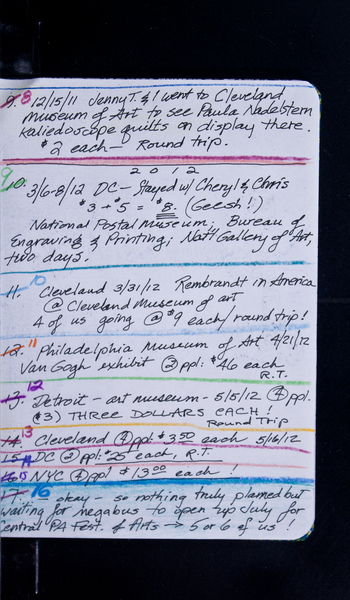 9. 8 12/15/11 Jenny T. & I went to Cleveland
Museum of Art to see Paula Nadelstern
Kaliedoscope quilts on display there.
$2 each — Round trip.
2012
9 10. 3/6-8/12 DC - Stayed w/ Cheryl & Chris
$3 + $5 = $8. (Geesh!)
National Postal Museum; Bureau of
Engraving & Printing; Nat'l Gallery of Art,
two days.
11. 10 Cleveland 3/31/12 Rembrandt in America
@ Cleveland Museum of art
4 of us going @ $9 each/round trip!
12. 11 Philadelphia Museum of Art 4/21/12
Van Gogh exhibit 2 ppl: $46 each
R.T.
13. 12 Detroit - art museum - 5/5/12 4 ppl.
($3) THREE DOLLARS EACH!
Round Trip
14. 3 Cleveland 4 ppl: $3.50 each 5/16/12
15. DC 2 ppl: $25 each, R.T.
16. 5 NYC 4 ppl $13.00 each!
17. 16 okay - so nothing truly planned but
waiting for megabus to open up July for
Central PA Fest. of Arts → 5 or 6 of us!